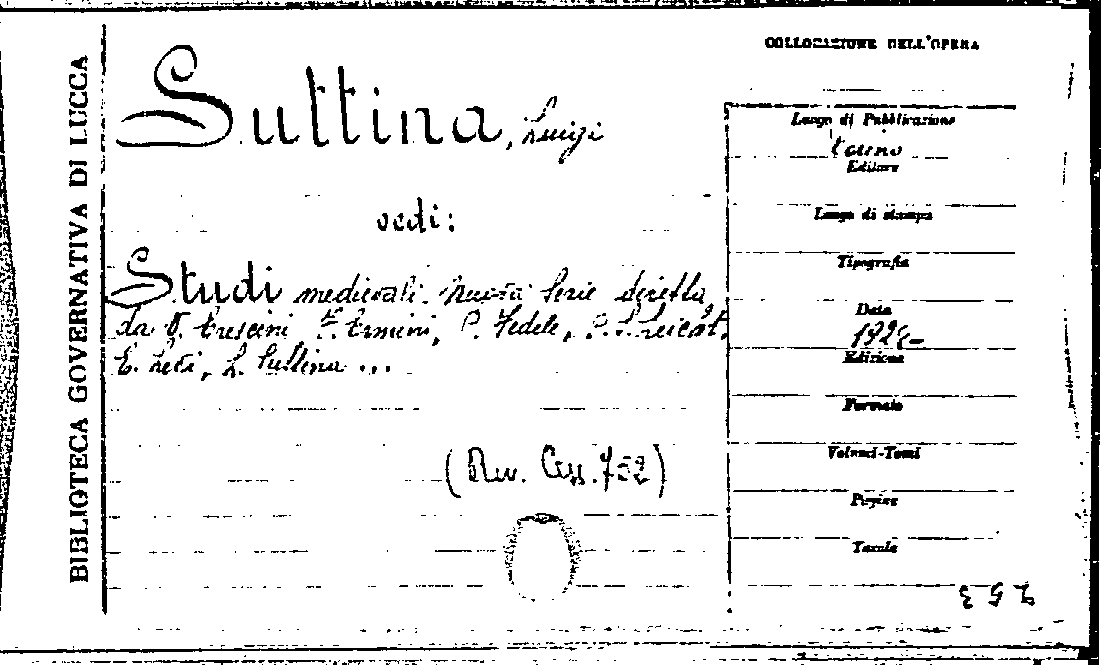 BIBLIOTECA GOVERNATIVA DI LUCCA
COLLOCAZIONE DELL'OPERA
Suttina, Luigi
vedi:
Studi medievali. Nuova Serie diretta
da V. Crescini, F. Ermini, P. Fedele, P. S. Leicht,
E. Levi, L. Suttina ...
(Riv. Cess. 752)
Luogo di Pubblicazione
Torino
Editore
Luogo di stampa
Tipografia
Data
Edizione
Formato
Volumi-Tomi
Pagine
Tavole
253